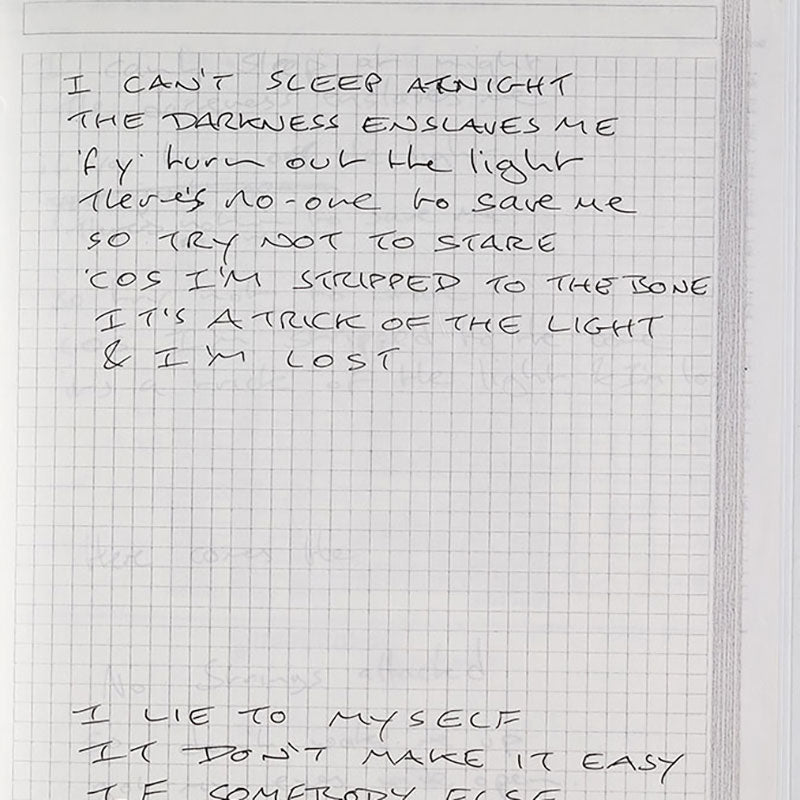 I CAN'T SLEEP AT NIGHT
THE DARKNESS ENSLAVES ME
'f y' turn out the light
there's no-one to save me
SO TRY NOT TO STARE
'COS I'M STRIPPED TO THE BONE
IT'S A TRICK OF THE LIGHT
& I'M LOST
Here comes the
No Strings attached
I LIE TO MYSELF
IT DON'T MAKE IT EASY
IF SOMEBODY ELSE